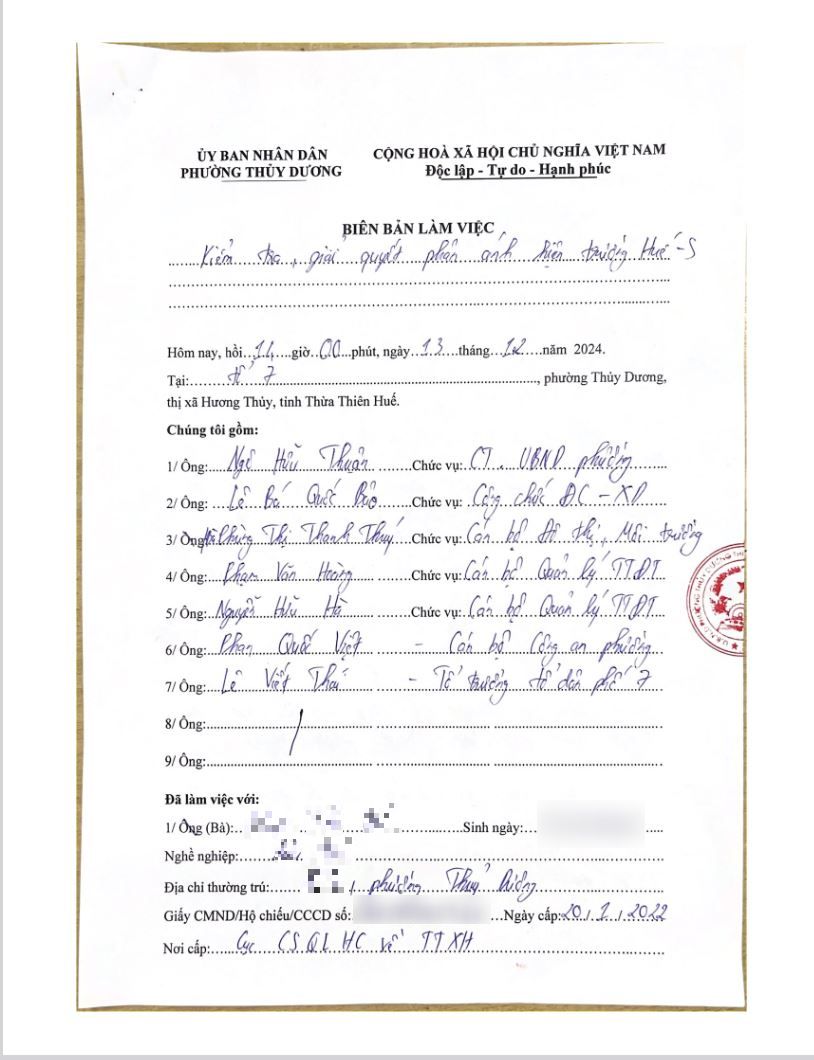 ỦY BAN NHÂN DÂN
PHƯỜNG THỦY DƯƠNG
CỘNG HOÀ XÃ HỘI CHỦ NGHĨA VIỆT NAM
Độc lập - Tự do - Hạnh phúc
BIÊN BẢN LÀM VIỆC
Kiểm tra, giải quyết phản ánh hiện trường Huế-S
Hôm nay, hồi 14 giờ 00 phút, ngày 13 tháng 12 năm 2024.
Tại: tổ 7, phường Thủy Dương,
thị xã Hương Thủy, tỉnh Thừa Thiên Huế.
Chúng tôi gồm:
1/ Ông: Ngô Hữu Thuận Chức vụ: CT. UBND phường
2/ Ông: Lê Bá Quốc Bảo Chức vụ: Công chức ĐC - XD
3/ Ông: Phùng Thị Thanh Thuý Chức vụ: Cán bộ Đô thị, Môi trường
4/ Ông: Phạm Văn Hoàng Chức vụ: Cán bộ Quản lý TTĐT
5/ Ông: Nguyễn Hữu Hà Chức vụ: Cán bộ Quản lý TTĐT
6/ Ông: Phan Quốc Việt - Cán bộ Công an phường
7/ Ông: Lê Viết Thái - Tổ trưởng tổ dân phố 7
8/ Ông:
9/ Ông:
Đã làm việc với:
1/ Ông (Bà): Sinh ngày:
Nghề nghiệp:
Địa chỉ thường trú: , phường Thuỷ Dương
Giấy CMND/Hộ chiếu/CCCD số: Ngày cấp: 20/1/2022
Nơi cấp: Cục CSQLHC về TTXH